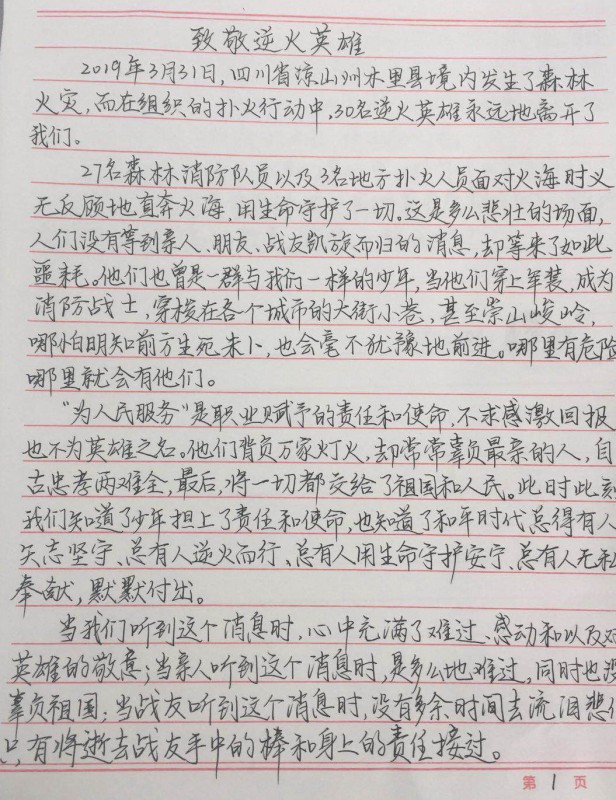 致敬逆火英雄
2019年3月31日,四川省凉山州木里县境内发生了森林
火灾,而在组织的扑火行动中,30名逆火英雄永远地离开了
我们。
27名森林消防队员以及3名地方扑火人员面对火海时义
无反顾地直奔火海,用生命守护了一切。这是多么悲壮的场面,
人们没有等到亲人、朋友、战友凯旋而归的消息,却等来了如此
噩耗。他们也曾是一群与我们一样的少年,当他们穿上军装,成为
消防战士,穿梭在各个城市的大街小巷,甚至崇山峻岭,
哪怕明知前方生死未卜,也会毫不犹豫地前进。哪里有危险
哪里就会有他们。
“为人民服务”是职业赋予的责任和使命,不求感激回报
也不为英雄之名。他们背负万家灯火,却常常辜负最亲的人,自
古忠孝两难全,最后,将一切都交给了祖国和人民。此时此刻
我们知道了少年担上了责任和使命,也知道了和平时代总得有人
矢志坚守、总有人逆火而行、总有人用生命守护安宁、总有人无私
奉献,默默付出。
当我们听到这个消息时,心中充满了难过、感动和以及对
英雄的敬意;当亲人听到这个消息时,是多么地难过,同时也没
辜负祖国;当战友听到这个消息时,没有多余时间去流泪悲伤
只有将逝去战友手中的棒和身上的责任接过。
第 1 页